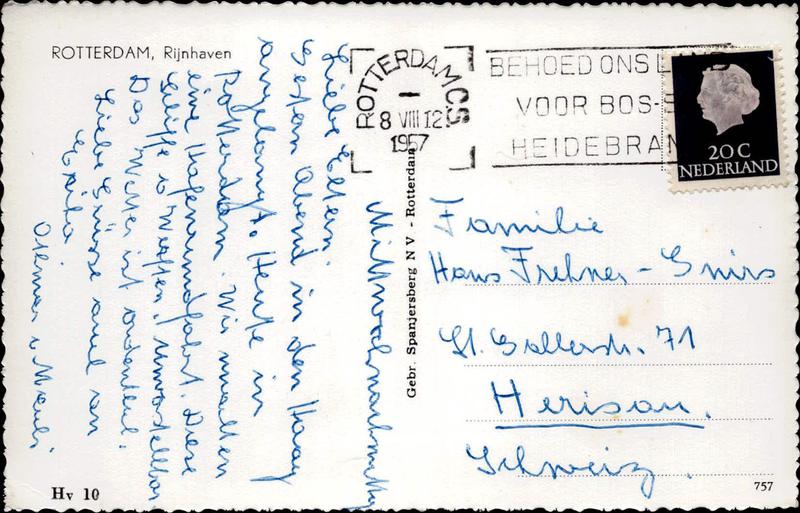 ROTTERDAM, Rijnhaven
ROTTERDAM C.S.
8 VIII 12
1957
BEHOED ONS LAND
VOOR BOS-
HEIDEBRAN
20 C
NEDERLAND
Mittwochnachmittag
Liebe Eltern.
Gestern Abend in den Haag
angelangt. Heute in
Rotterdam. Wir machten
eine Hafenrundfahrt. Diese
Schiffe u Werften, unvorstellbar
Das Wetter ist ordentlich.
Liebe Grüsse auch an
Othmar u Mauli
Familie
Hans Frehner-Gnirs
St. Gallerstr. 71
Herisau.
Schweiz.
Gebr. Spanjersberg N V - Rotterdam
Hv 10
757